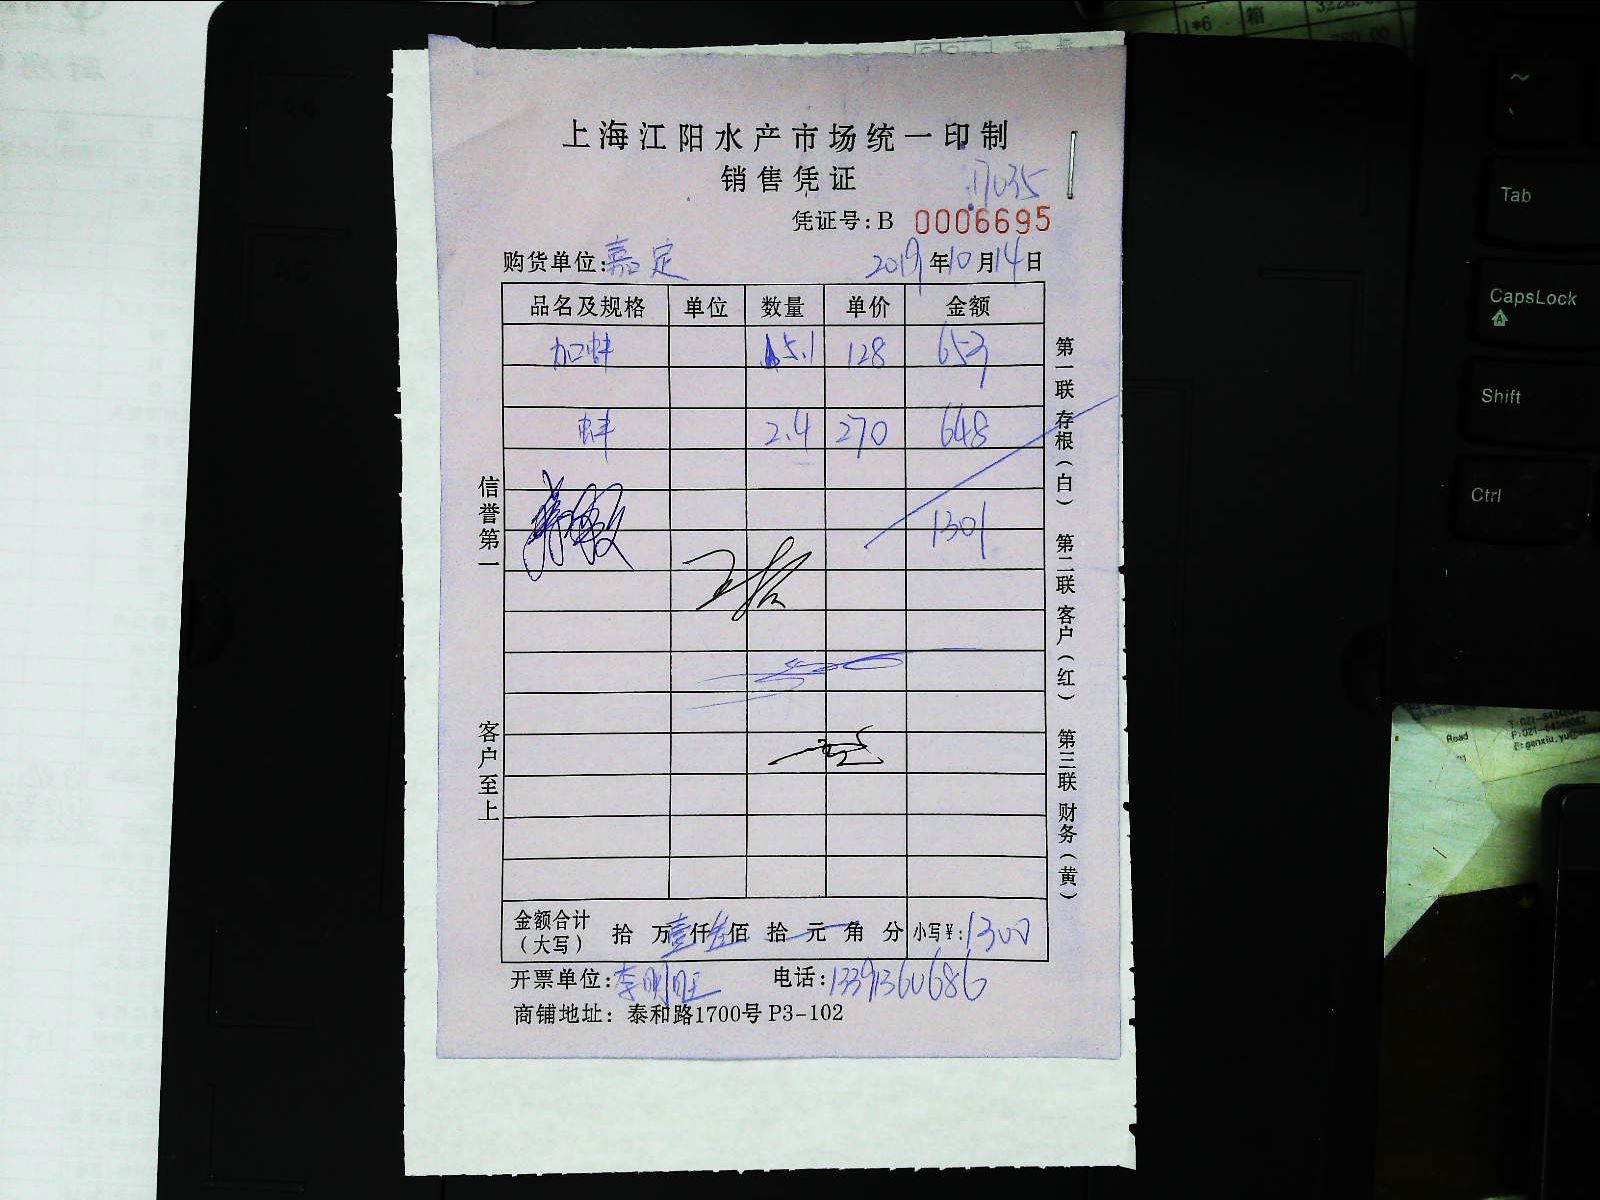 上海江阳水产市场统一印制
销售凭证
17035
凭证号:B 0006695
购货单位:嘉定 2019年10月14日
品名及规格 单位 数量 单价 金额
加蚌 5.1 128 653
蚌 2.4 270 648
1301
信誉第一
客户至上
第一联 存根(白) 第二联 客户(红) 第三联 财务(黄)
金额合计(大写) 拾 万壹仟叁佰 拾 元 角 分 小写¥:1300
开票单位:李明旺 电话:13391360686
商铺地址: 泰和路1700号 P3-102
1*6 箱
~
Tab
CapsLock
Shift
Ctrl
Read